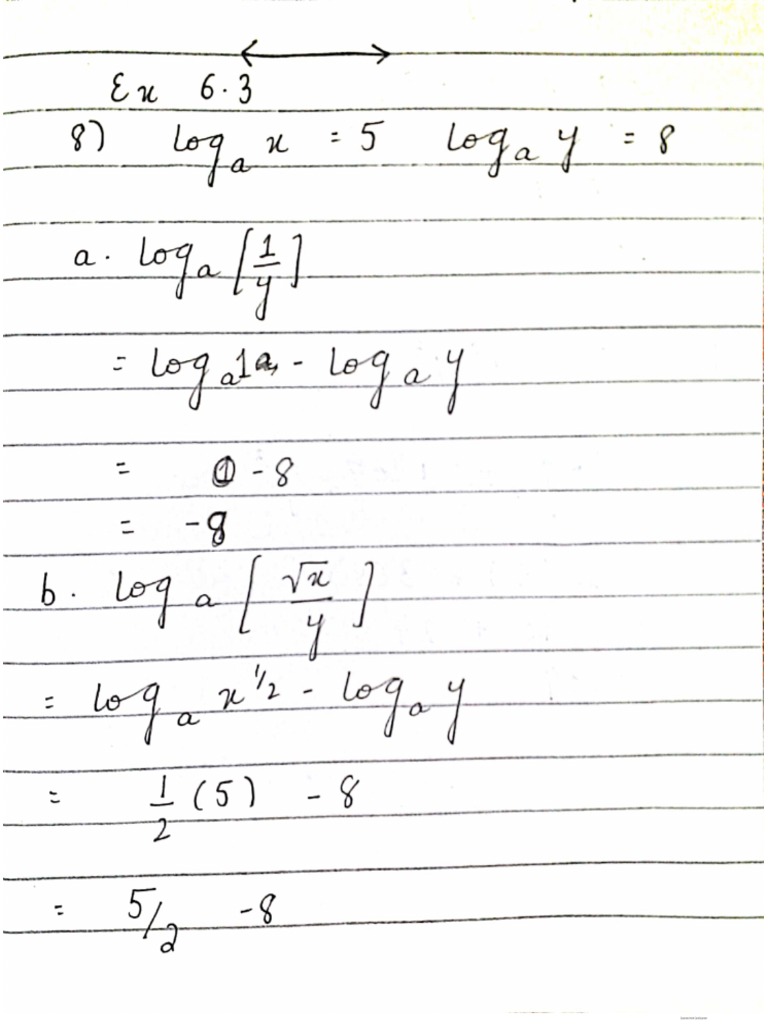 Ex 6.3
8) logₐ x = 5 logₐ y = 8
a. logₐ [1/y]
= logₐ 1 - logₐ y
= 0 - 8
= -8
b. logₐ [√x/y]
= logₐ x^1/2 - logₐ y
= 1/2 (5) - 8
= 5/2 - 8